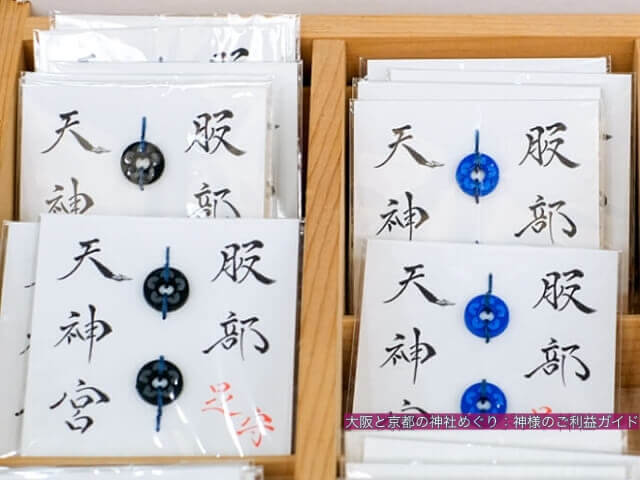 服部
天神
服部
天神
服部
天神宮
足守
服部
天神
大阪と京都の神社めぐり：神様のご利益ガイド